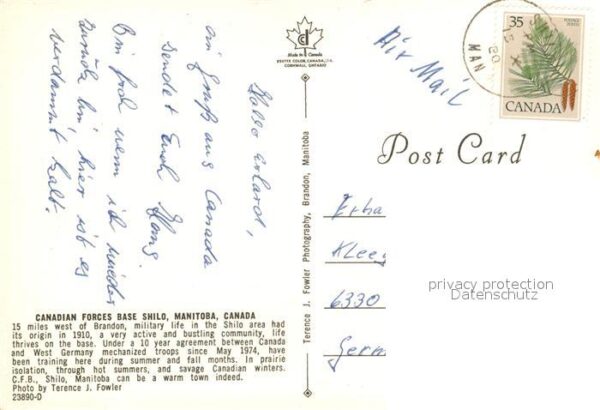 Hallo Erhard,
ein Gruß aus Canada
sendet Euch
Bin froh wenn ich wieder
zurück bin, hier ist es
verdammt kalt.
Made in Canada
DEXTER COLOR, CANADA, LTD.
CORNWALL, ONTARIO
Air Mail
MAN
35
POSTAGE POSTES
CANADA
Post Card
Erha
Klee
6330
Germ
privacy protection
Datenschutz
Terence J. Fowler Photography, Brandon, Manitoba
CANADIAN FORCES BASE SHILO, MANITOBA, CANADA
15 miles west of Brandon, military life in the Shilo area had
its origin in 1910, a very active and bustling community, life
thrives on the base. Under a 10 year agreement between Canada
and West Germany mechanized troops since May 1974, have
been training here during summer and fall months. In prairie
isolation, through hot summers, and savage Canadian winters.
C.F.B., Shilo, Manitoba can be a warm town indeed.
Photo by Terence J. Fowler
23890-D